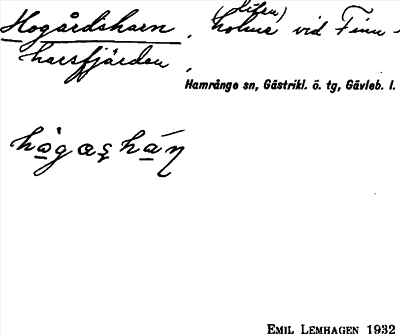 Hogårdsharn, (liten) holme vid Finn-
harsfjärden,
Hamrånge sn, Gästrikl. ö. tg, Gävleb. l.
EMIL LEMHAGEN 1932